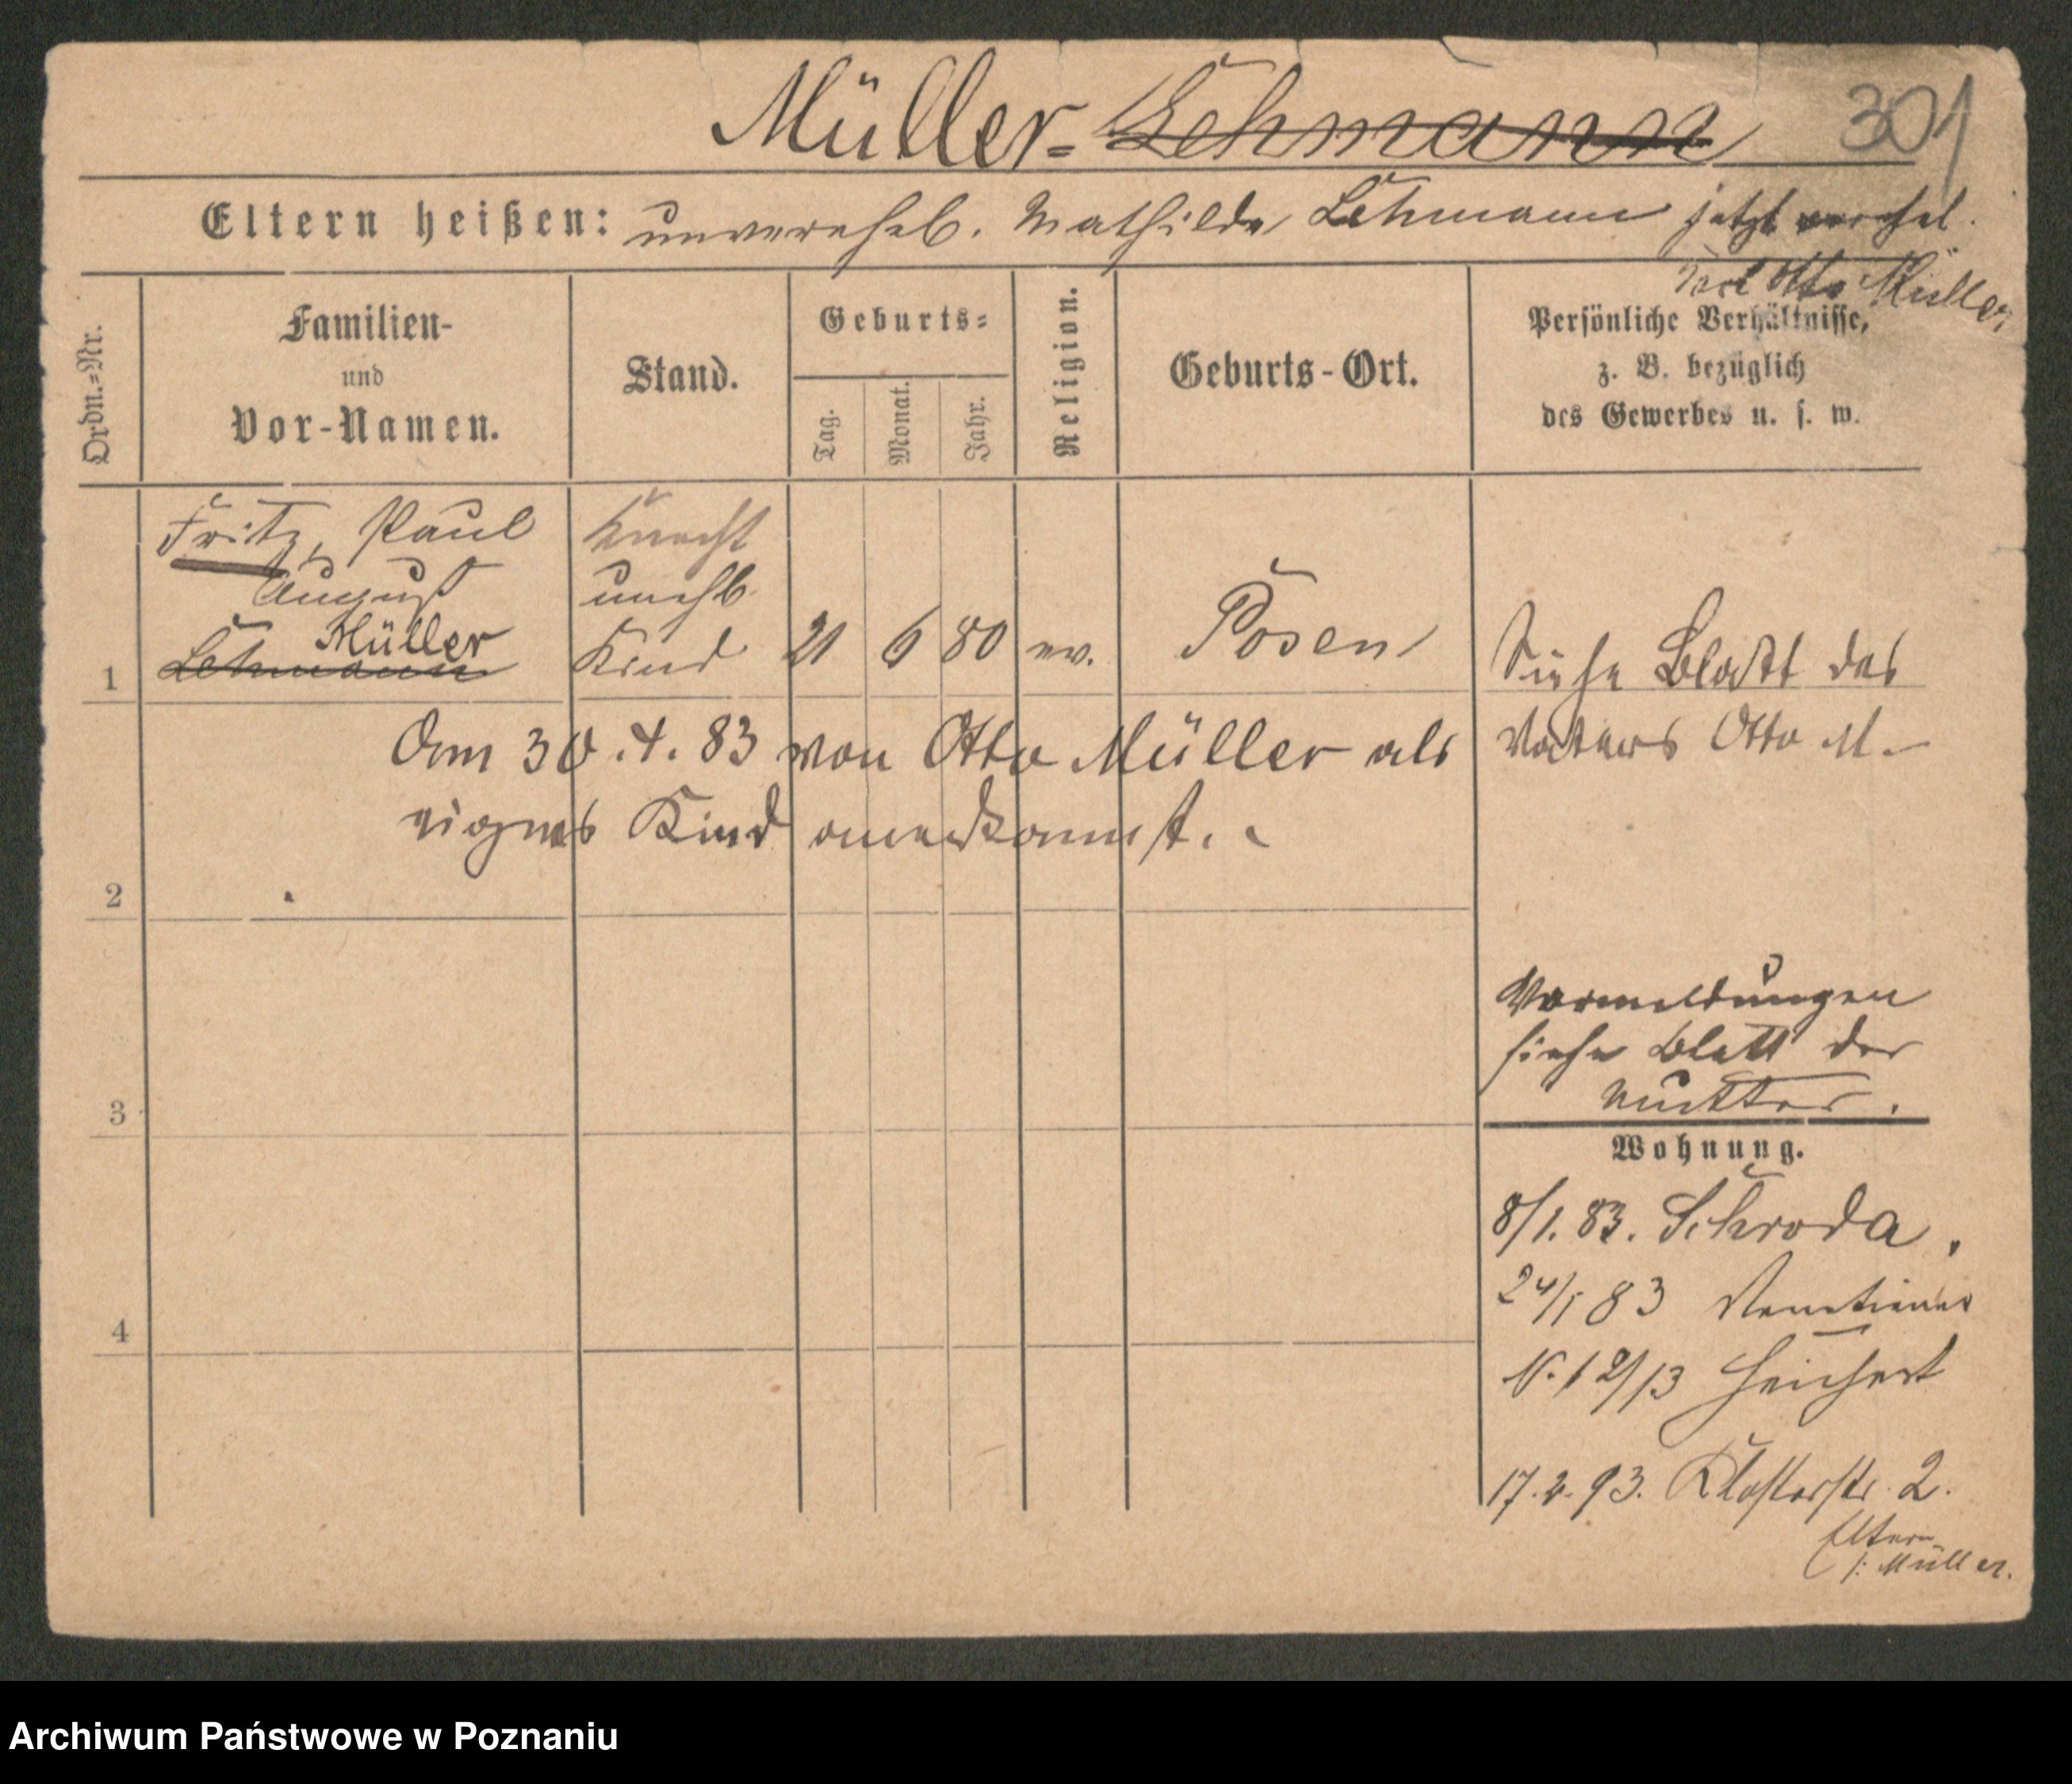 Müller= Lehmann 301
Eltern heißen: unverehel. Mathilde Lehmann jetzt verehel.
Karl Otto Müller
Ordn.=Nr.
Familien-
und
Vor-Namen.
Stand.
Geburts=
Tag.
Monat.
Jahr.
Religion.
Geburts-Ort.
Persönliche Verhältnisse,
z. B. bezüglich
des Gewerbes u. s. w.
Fritz, Paul Knecht
August unehl.
Müller
1 Lehmann Kind 21 6 80 ev. Posen Siehe Blatt des
Am 30.4.83 von Otto Müller als Vaters Otto M.
eignes Kind anerkannt.
2
Vormeldungen
siehe Blatt der
Mutter.
3
Wohnung.
8/1. 83. Schroda.
24/1 83
4
N. 12/13
17. 2. 93. Klosterstr. 2.
Eltern
/: Müller.
Archiwum Państwowe w Poznaniu